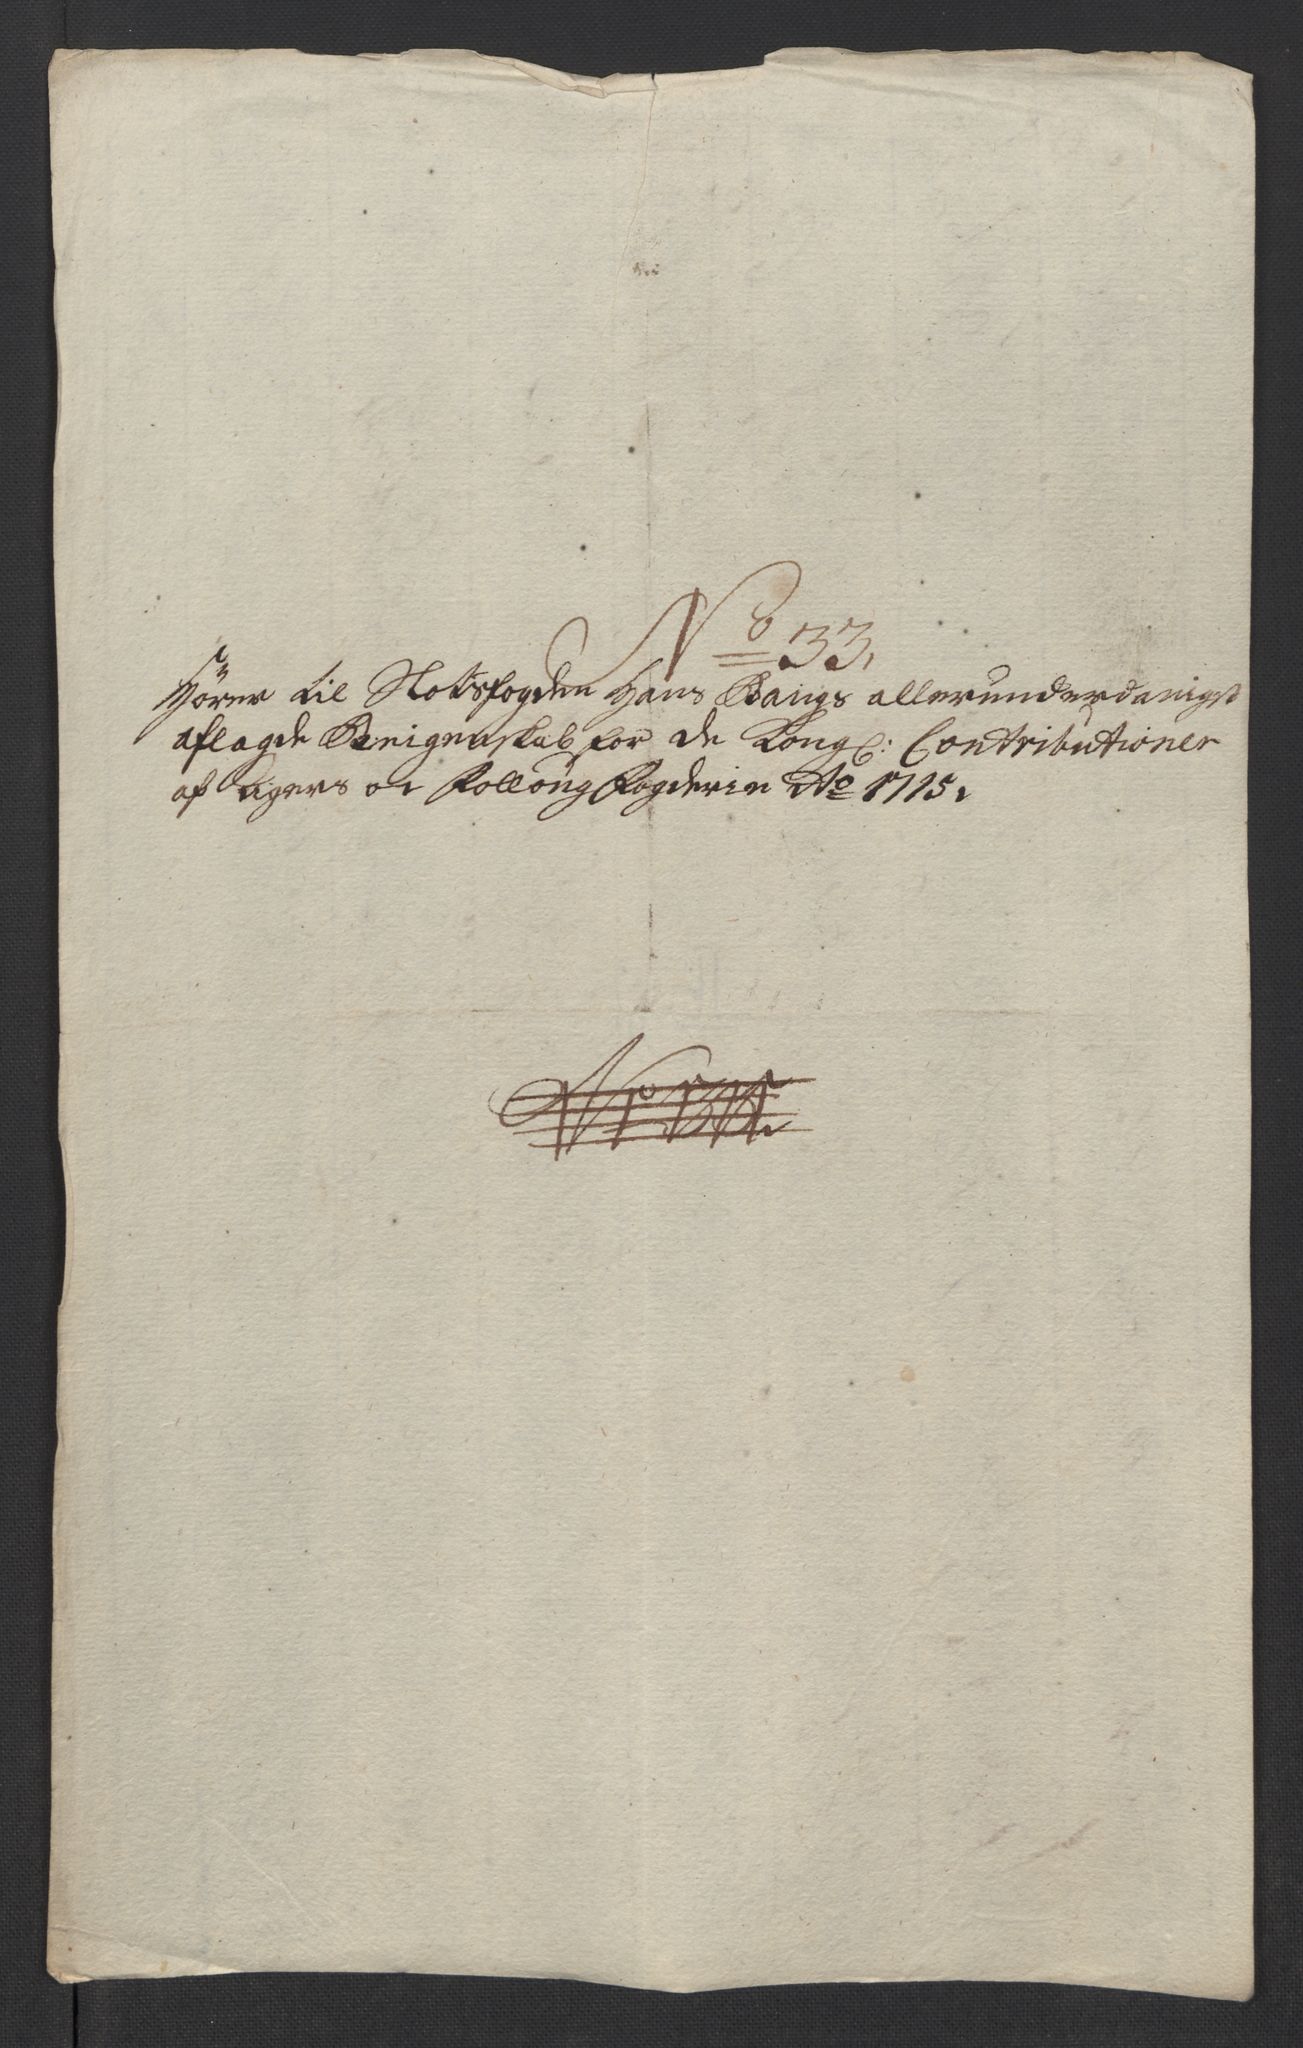 No 33,
Hörer til Slotsfogden Hans Bangs allerunderdanigst
aflagde Reigenskab for de Kongl: Contributioner
af Agers oc Folloug fogderie Ao 1715,